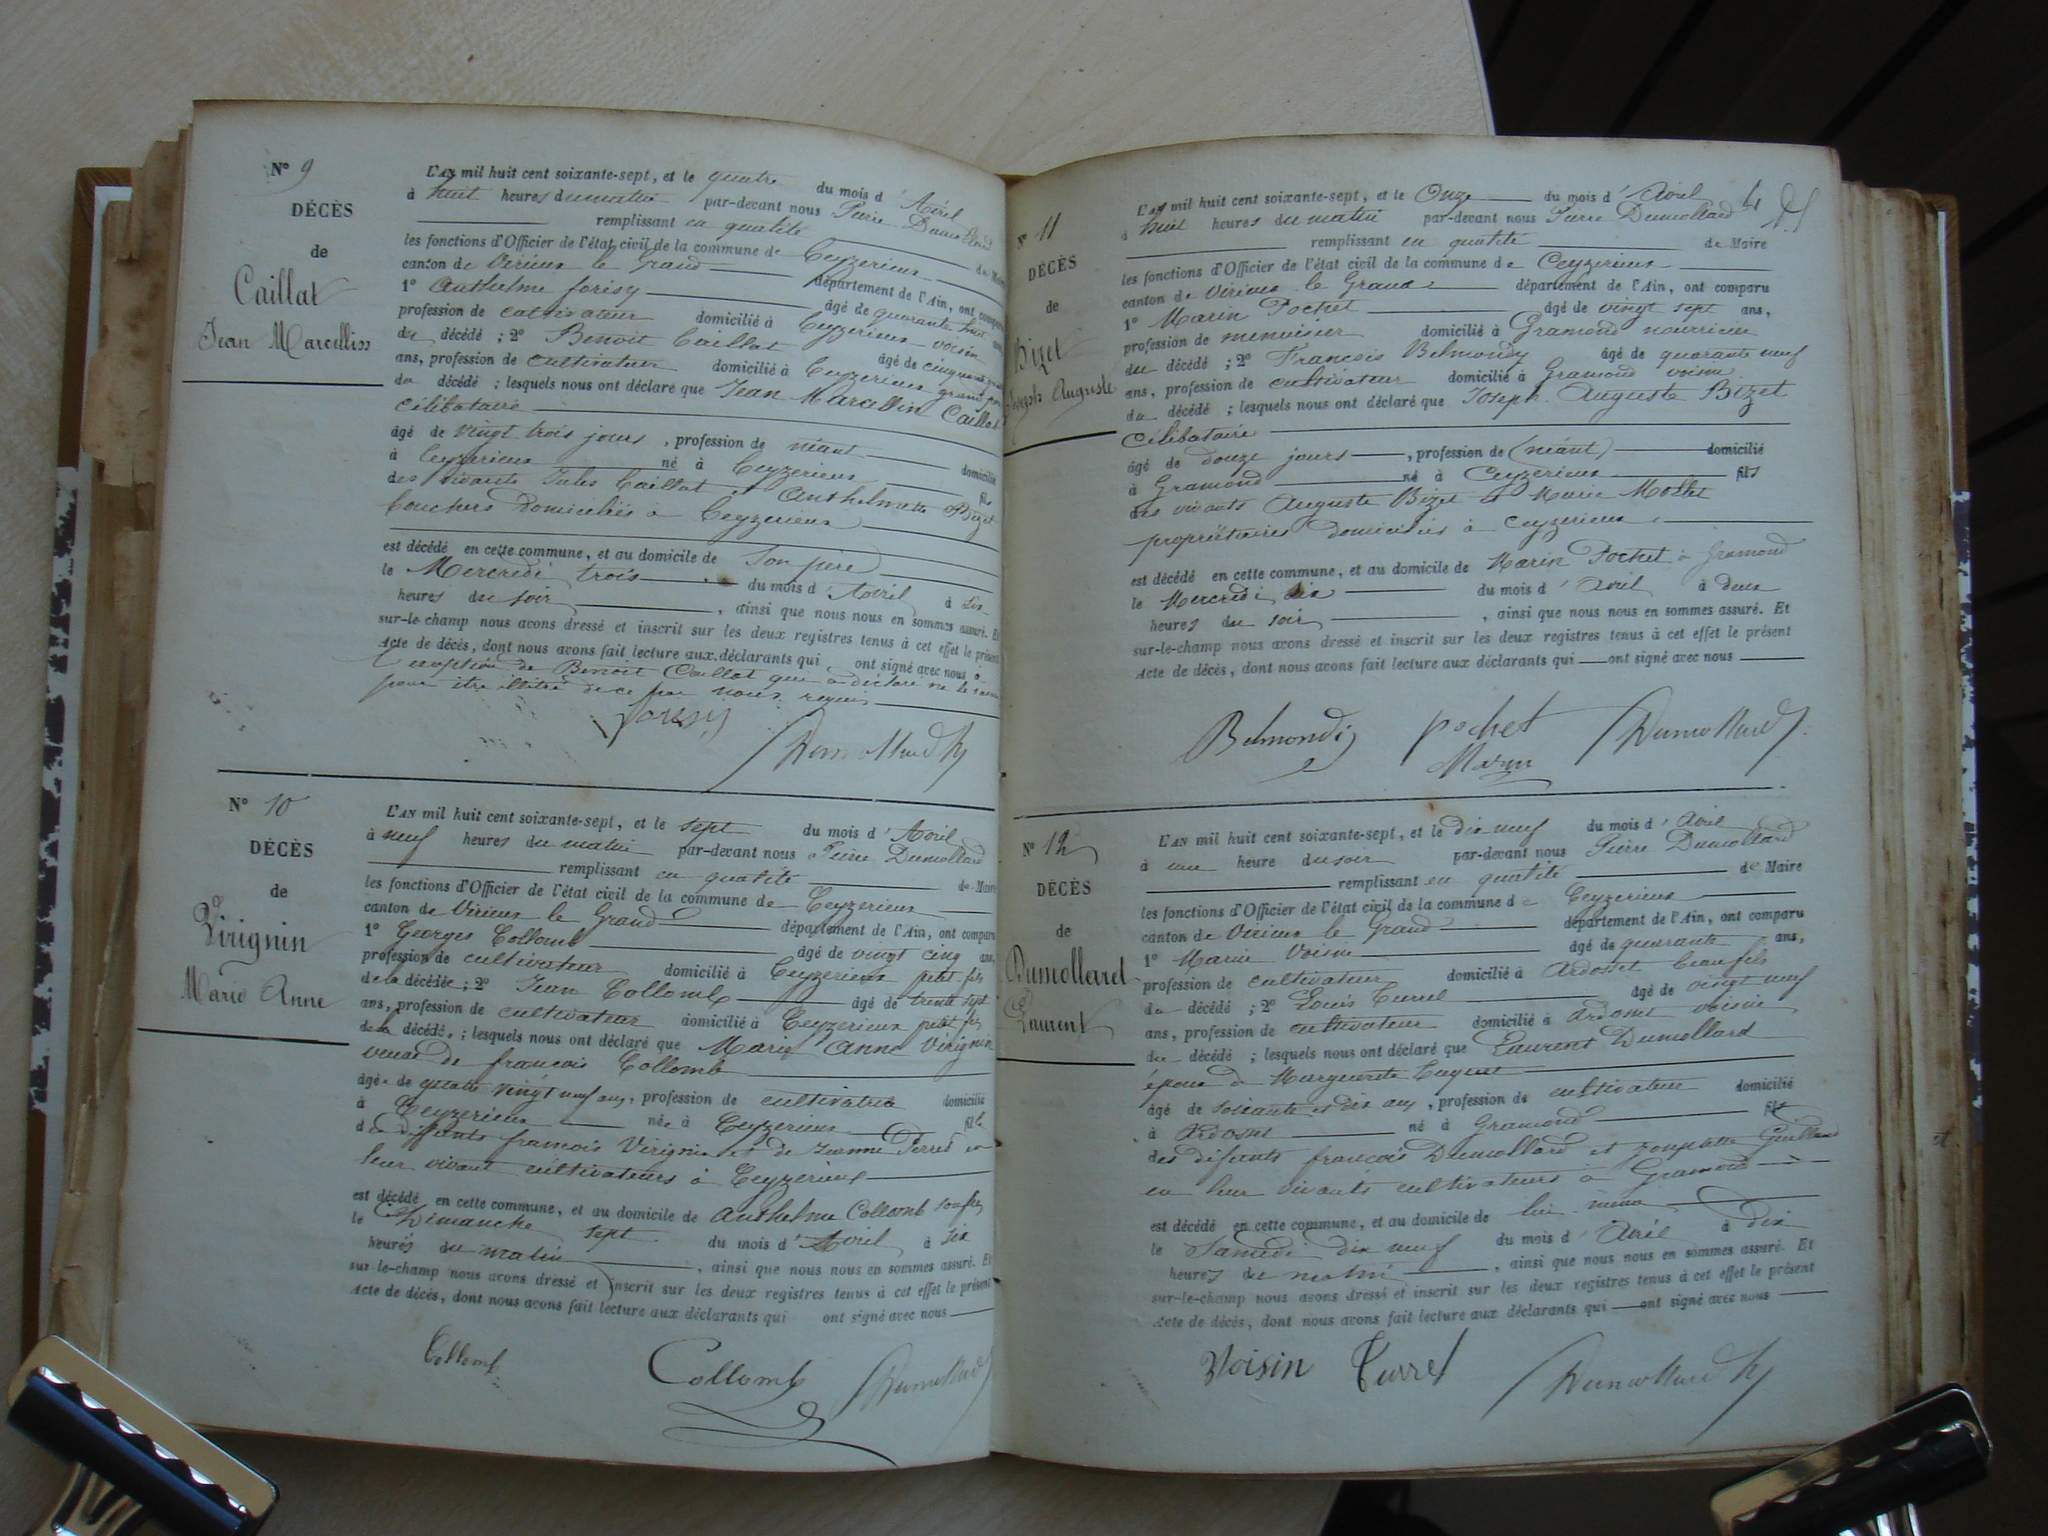 N° 9
DÉCÈS
de
Caillat
Jean Marcellin
L'AN mil huit cent soixante-sept, et le quatre du mois d'Avril
à huit heures du matin par-devant nous Pierre Dumollard
remplissant en qualité de Maire
les fonctions d'Officier de l'état civil de la commune de Ceyzerieu
canton de Virieu le Grand département de l'Ain, ont comparu
1° Anthelme forisy âgé de quarante huit ans,
profession de cultivateur domicilié à Ceyzerieu voisin
du décédé ; 2° Benoit Caillat âgé de cinquante
ans, profession de cultivateur domicilié à Ceyzerieu grand père
du décédé ; lesquels nous ont déclaré que Jean Marcellin Caillat
célibataire
âgé de vingt trois jours, profession de néant domicilié
à Ceyzerieu né à Ceyzerieu fils
des vivants Jules Caillat et Anthelmette Bizet
bouchers domiciliés à Ceyzerieu
est décédé en cette commune, et au domicile de Son père
le Mercredi trois du mois d'Avril à six
heures du soir, ainsi que nous nous en sommes assuré. Et
sur-le-champ nous avons dressé et inscrit sur les deux registres tenus à cet effet le présent
Acte de décès, dont nous avons fait lecture aux déclarants qui ont signé avec nous à
l'exception de Benoit Caillat qui a déclaré ne le savoir
pour être illitré de ce par nous requis
Dumollard
N° 10
DÉCÈS
de
Virignin
Marie Anne
L'AN mil huit cent soixante-sept, et le sept du mois d'Avril
à neuf heures du matin par-devant nous Pierre Dumollard
remplissant en qualité de Maire
les fonctions d'Officier de l'état civil de la commune de Ceyzerieu
canton de Virieu le Grand département de l'Ain, ont comparu
1° Georges Collomb âgé de vingt cinq ans,
profession de cultivateur domicilié à Ceyzerieu petit fils
de la décédée ; 2° Jean Collomb âgé de trente sept
ans, profession de cultivateur domicilié à Ceyzerieu petit fils
de la décédé. ; lesquels nous ont déclaré que Marie Anne Virignin
veuve de françois Collomb
âgée de quatre vingt neuf ans, profession de cultivatrice domicilié
à Ceyzerieu née à Ceyzerieu fille
de défunts françois Virignin et de Jeanne Perret en
leur vivant cultivateurs à Ceyzerieu
est décédé en cette commune, et au domicile de Anthelme Collomb son fils
le Dimanche sept du mois d'Avril à six
heures du matin, ainsi que nous nous en sommes assuré. Et
sur-le-champ nous avons dressé et inscrit sur les deux registres tenus à cet effet le présent
Acte de décès, dont nous avons fait lecture aux déclarants qui ont signé avec nous
Collomb Collomb Dumollard
4
N° 11
DÉCÈS
de
Bizet
Joseph Auguste
L'AN mil huit cent soixante-sept, et le Onze du mois d'Avril
à huit heures du matin par-devant nous Pierre Dumollard
remplissant en qualité de Maire
les fonctions d'Officier de l'état civil de la commune de Ceyzerieu
canton de Virieu le Grand département de l'Ain, ont comparu
1° Marin Pochet âgé de vingt sept ans,
profession de menuisier domicilié à Gramond nourricier
du décédé ; 2° François Belmondy âgé de quarante neuf
ans, profession de cultivateur domicilié à Gramond voisin
du décédé ; lesquels nous ont déclaré que Joseph Auguste Bizet
Célibataire
âgé de douze jours, profession de (néant) domicilié
à Gramond né à Ceyzerieu fils
des vivants Auguste Bizet et Marie Mollet
propriétaires domiciliés à Ceyzerieu
est décédé en cette commune, et au domicile de Marin Pochet à Gramond
le Mercredi dix du mois d'Avril à deux
heures du soir, ainsi que nous nous en sommes assuré. Et
sur-le-champ nous avons dressé et inscrit sur les deux registres tenus à cet effet le présent
Acte de décès, dont nous avons fait lecture aux déclarants qui ont signé avec nous
Belmondy pochet Dumollard
Marin
N° 12
DÉCÈS
de
Dumollard
Laurent
L'AN mil huit cent soixante-sept, et le dix neuf du mois d'Avril
à une heure du soir par-devant nous Pierre Dumollard
remplissant en qualité de Maire
les fonctions d'Officier de l'état civil de la commune de Ceyzerieu
canton de Virieu le Grand département de l'Ain, ont comparu
1° Marin Voisin âgé de quarante ans,
profession de cultivateur domicilié à Ardosset beau fils
du décédé ; 2° Louis Turrel âgé de vingt neuf
ans, profession de cultivateur domicilié à Ardosset voisin
du décédé ; lesquels nous ont déclaré que Laurent Dumollard
époux de Marguerite
âgé de soixante et dix ans, profession de cultivateur domicilié
à Ardosset né à Gramond fils
des défunts françois Dumollard et Guilland
en leur vivants cultivateurs à Gramond
est décédé en cette commune, et au domicile de lui même
le Samedi dix neuf du mois d'Avril à dix
heures du matin, ainsi que nous nous en sommes assuré. Et
sur-le-champ nous avons dressé et inscrit sur les deux registres tenus à cet effet le présent
Acte de décès, dont nous avons fait lecture aux déclarants qui ont signé avec nous
Voisin Turrel Dumollard